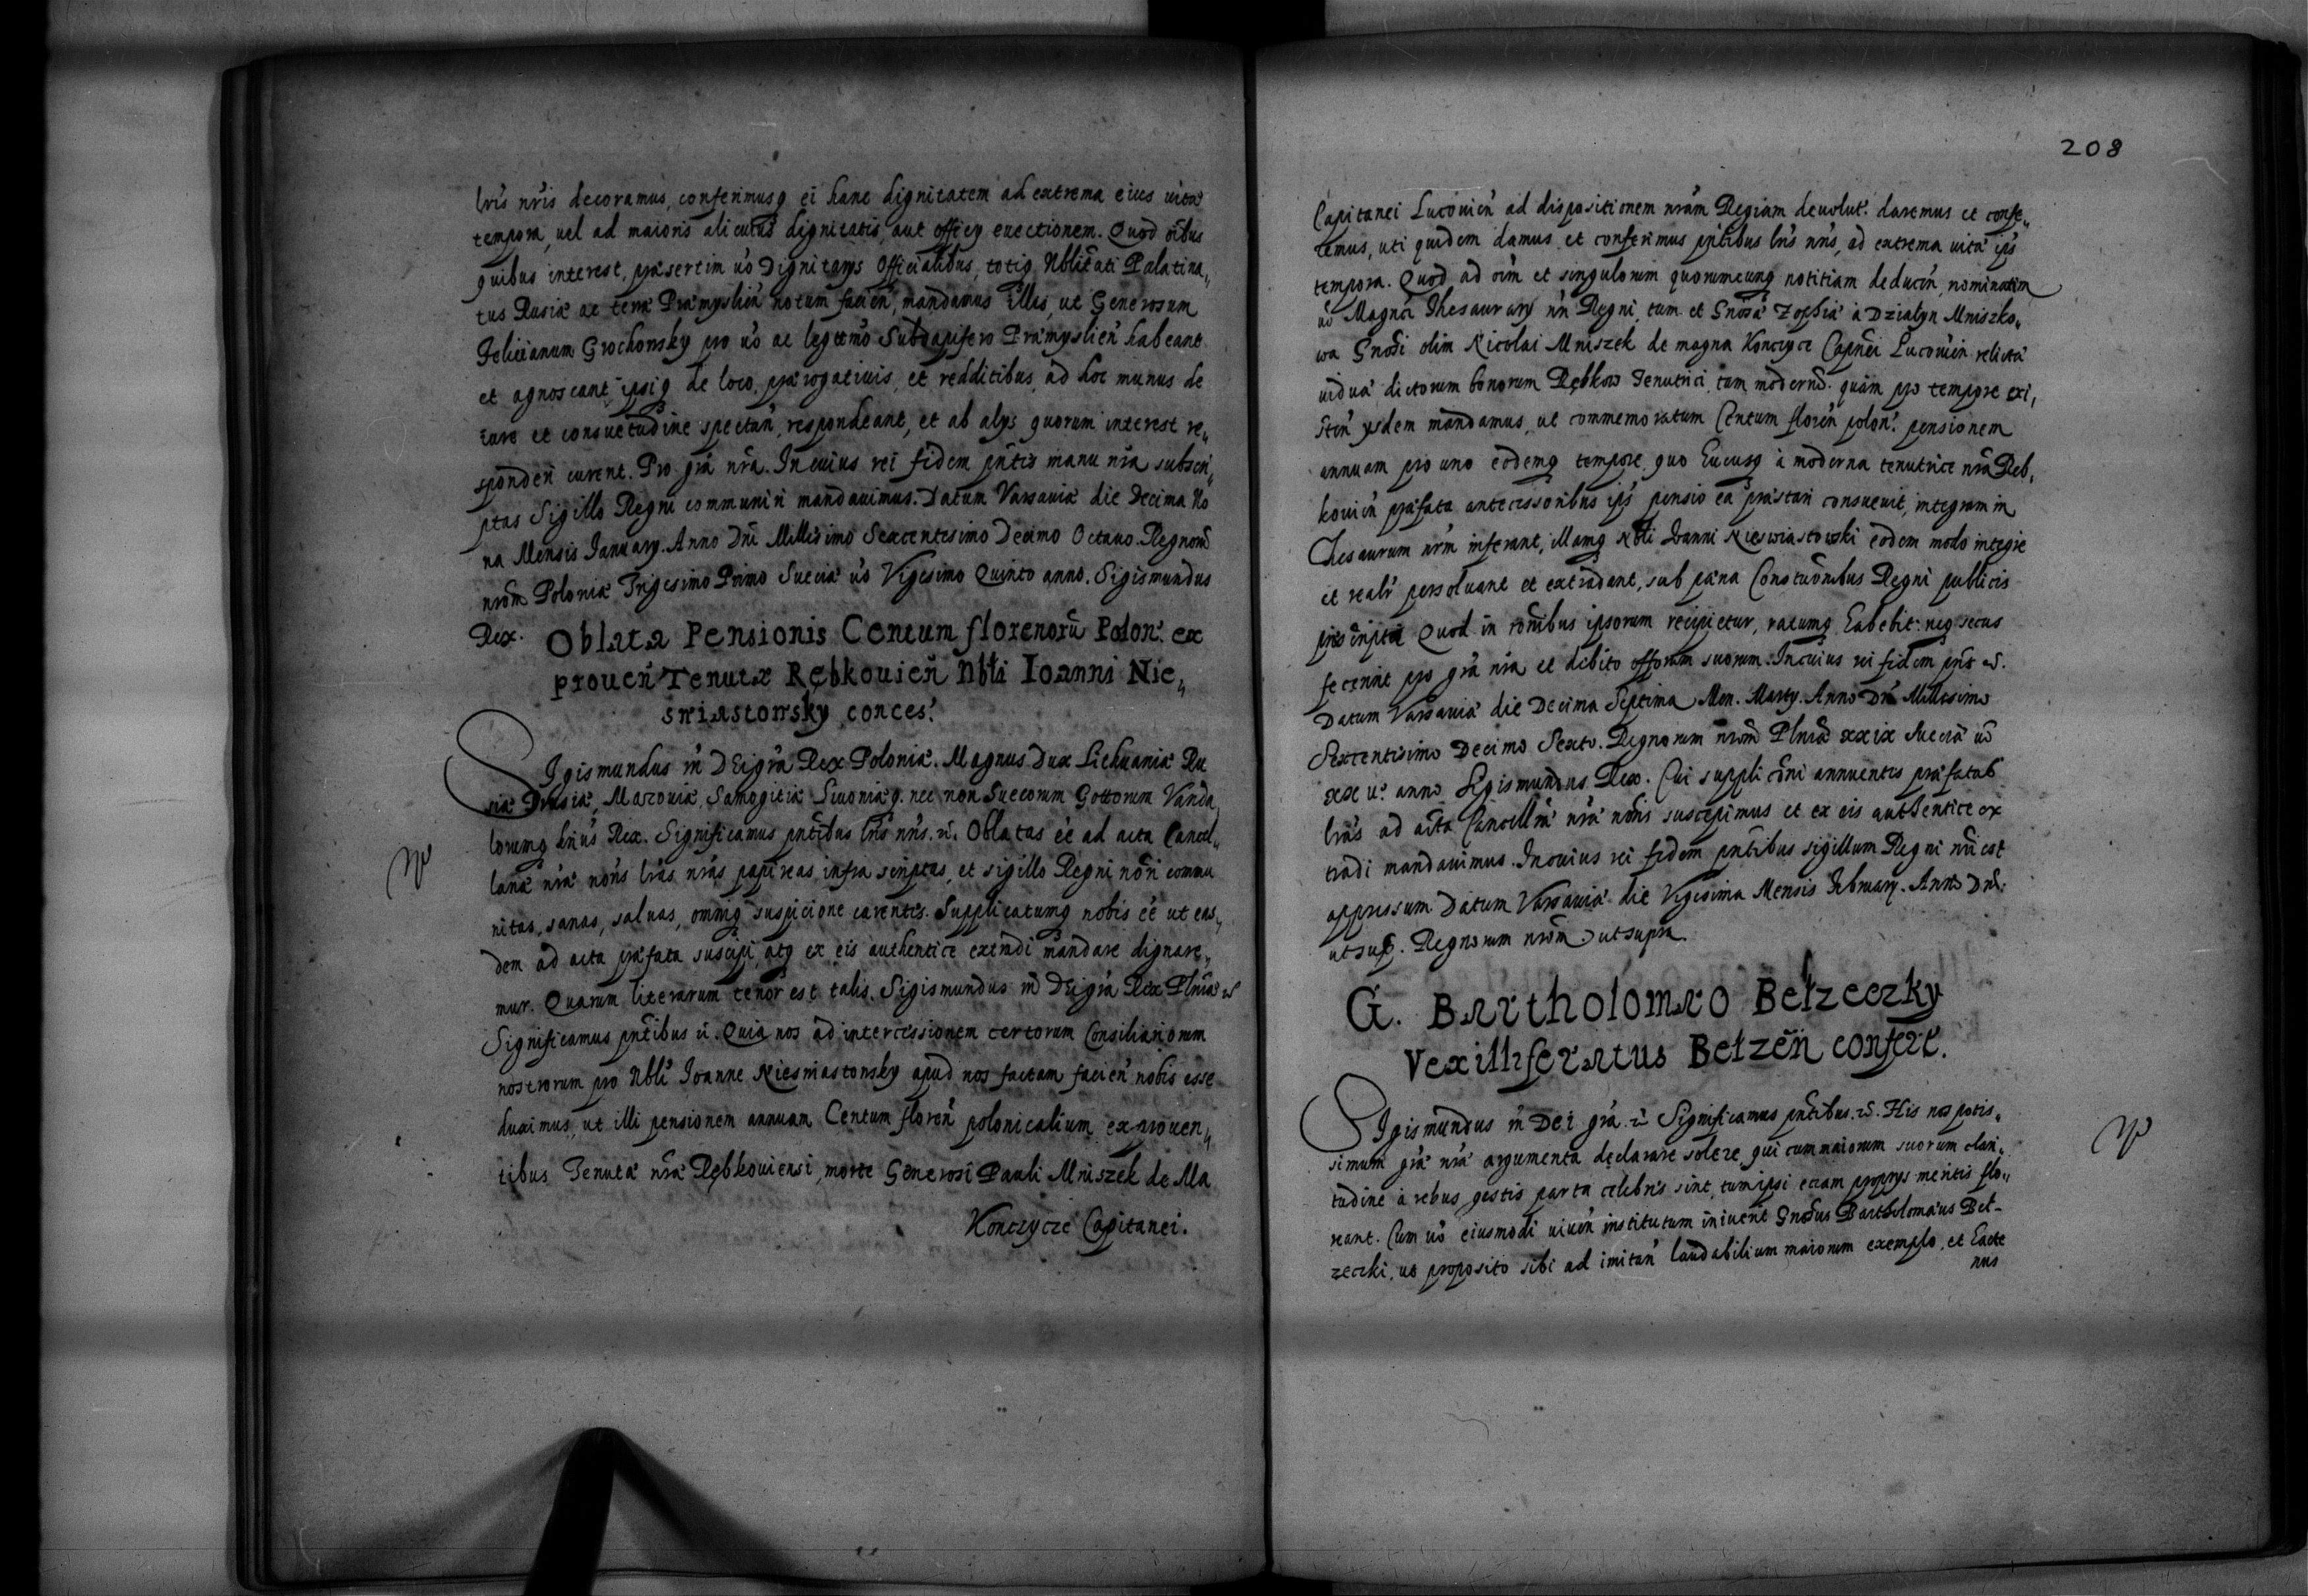 lris nris decoramus, conferimusq ei hanc dignitatem ad extrema eius vitæ
tempora, vel ad maioris alicuius dignitatis, aut officy evectionem. Quod oibus
quibus interest, præsertim vo Dignitarys Officialibus, totiq Nblitati Palatina„
tus Rusiæ ac terræ Præmyslien notum facien, mandamus illis, ut Generosum
Felicianum Grochowsky pro vo ac legitimo Subdapifero Præmyslien habeant
et agnoscant ipsiq de loco, prærogativis, et redditibus, ad hoc munus de
iure et consuetudine spectan, respondeant, et ab alys quorum interest re„
sponderi curent. Pro gra nra. In cuius rei fidem pntes manu nra subscri„
ptas Sigillo Regni communiri mandavimus. Datum Varsaviæ die Decima No
na Mensis January. Anno Dni Millesimo Sexcentesimo Decimo Octavo. Regnorum
nrom Poloniæ Trigesimo Primo Sueciæ vo Vigesimo Quinto anno. Sigismundus
Rex.
Oblata Pensionis Centum florenorū Polon. ex
proven Tenutæ Rębkovien Nbli Ioanni Nie„
swiastowsky conces.
Sigismundus III DEi gra Rex Poloniæ. Magnus Dux Lithuaniæ Ru
siæ Prusiæ, Masoviæ, Samogitiæ Livoniæq. nec non Suecorum Gottorum Vanda
lorumq hrius Rex. Significamus pntibus lris nris. Oblatas ee ad acta Cancel„
lariæ nræ nons lras nras papireas, infra scriptas, et sigillo Regni nri commu
nitas, sanas, salvas, omniq suspicione carentes. Supplicatumq nobis ee ut eas„
dem ad acta præfata suscipi, atq ex eis authentice extradi mandare dignare„
mur. Quarum literarum tenor est talis. Sigismundus III DEi gra Rex Plniæ
Significamus pntibus. Quia nos ad intercessionem certorum Consiliariorum
nostrorum pro Nbli Ioanne Nieswiastowsky apud nos factam facien nobis esse
duximus, ut illi pensionem annuam Centum floren polonicalium ex proven„
tibus Tenutæ nræ Rębkoviensi, morte Generosi Pauli Mniszek de Ma
Konczycze Capitanei.
208
Capitanei Lucovien ad dispositionem nram Regiam devolut. daremus et confe„
remus, uti quidem damus et conferimus pntibus lris nris, ad extrema vitæ ips
tempora. Quod ad oim et singulorum quorumcunq notitiam deducen, nominatim
vo Magnci Thesaurary nri Regni, tum et Gnosæ Zophiæ a Dzialyn Mniszko„
wa Gnosi olim Nicolai Mniszek de magna Konczyce Capnei Lucovien relictæ
viduæ dictorum bonorum Rębkow Tenutrici tam moderno. quam pro tempore exi„
sten ysdem mandamus, ut commemoratum Centum floren polon. pensionem
annuam pro uno eodemq tempore, quo hucusq a moderna tenutrice nra Reb„
kovien præfata antecessoribus ips pensio ea præstari consuevit, integram in
Thesaurum nrm inferant, illamq Nbli Ioanni Nieswiastowski eodem modo integre
et realr persolvant et extradant, sub pæna Constuonibus Regni publicis
præscripta Quod in ronibus ipsorum recipietur, ratumq habebit: neq secus
fecerint pro gra nra et debito offorum suorum. In cuius rei fidem pnts
Datum Varsaviæ die Decima Septima Men. Marty. Anno Dni Millesimo
Sexcentesimo Decimo Sexto. Regnorum nrom Plniæ xxix Sueciæ vo
xx v. anno Sigismundus Rex. Cui supplicōni annuentes præfatas
lras ad acta Cancellriæ nræ nons suscepimus et ex eis authentice ex
tradi mandavimus. In cuius rei fidem pntibus sigillum Regni nri est
appressum Datum Varsaviæ die Vigesima Mensis February. Anno Dni
ut sup. Regnorum nrom ut supra.
G. Bartholomæo Bełzeczky
Vexilliferatus Bełzen confert.
Sigismundus III Dei gra. Significamus pntibus. His nos potis„
simum græ nræ argumenta declarare solere, qui cum maiorum suorum clari„
tudine a rebus gestis parta celebres sint, tum ipsi etiam proprys meritis flo„
reant. Cum vo eiusmodi viven institutum iniverit Gnosus Bartholomæus Beł-
zeczki, ut proposito sibi ad imitan laudabilium maiorum exemplo, et hacte
nus